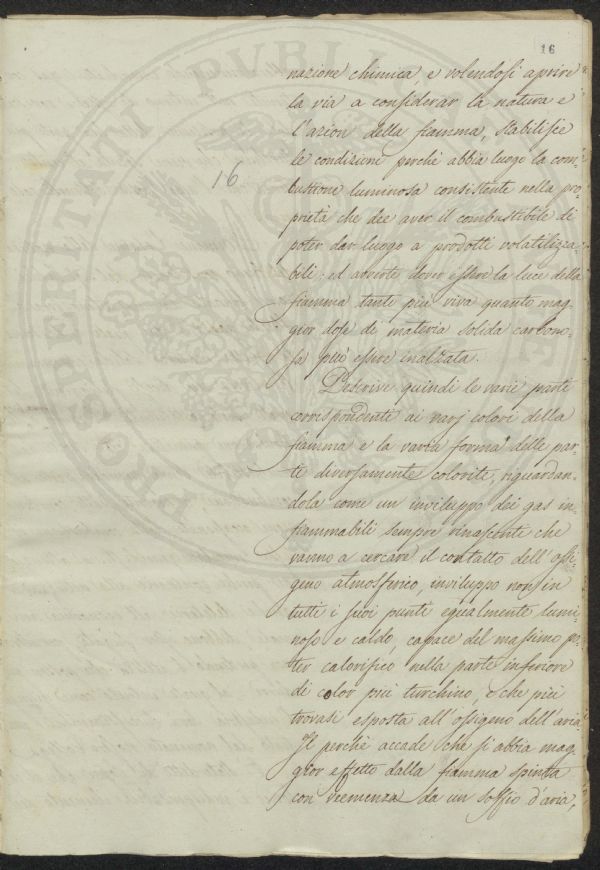 16
16
nazione chimica, e volendosi aprire
la via a considerar la natura e
l'azion della fiamma, stabilisce
le condizioni perchè abbia luogo la com=
bustione luminosa consistente nella pro=
prietà che dee aver il combustibile di
poter dar luogo a prodotti volatilizza=
bili: ed avverte dover essere la luce della
fiamma tanto più viva quanto mag=
gior dose di materia solida carbono=
sa può essere inalzata.
Descrive quindi le varie parti
corrispondenti ai varj colori della
fiamma e la varia forma delle par=
ti diversamente colorite, riguardan=
dola come un inviluppo dei gas in=
fiammabili sempre rinascente che
vanno a cercare il contatto dell'ossi=
geno atmosferico, inviluppo non in
tutti i suoi punti egualmente lumi=
noso e caldo, capace del massimo po=
ter calorifico nella parte inferiore
di color più turchino, e che più
trovasi esposta all'ossigeno dell'aria.
Il perchè accade che si abbia mag=
gior effetto dalla fiamma spinta
con veemenza da un soffio d'aria,
PROSPERITATI PVBLICAE